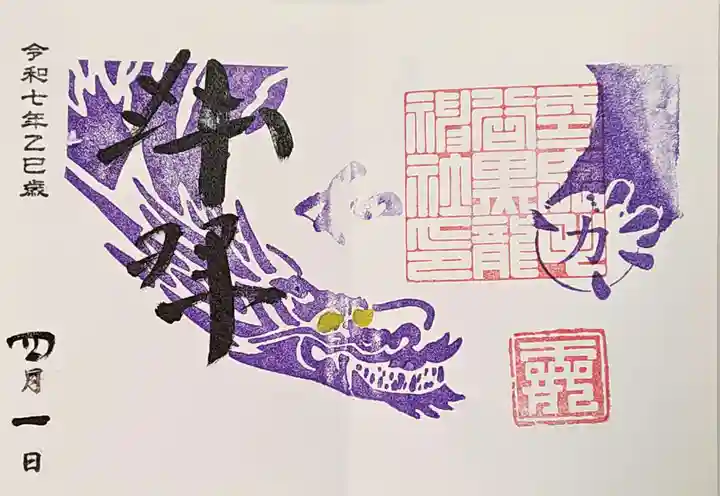 谷黒龍
神社印
奉拝
令和七年乙巳歳
四月一日